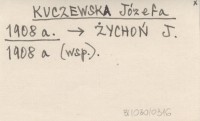 KUCZEWSKA Józefa
1908 a. → ŻYCHOŃ J.
1908 a (wsp.).